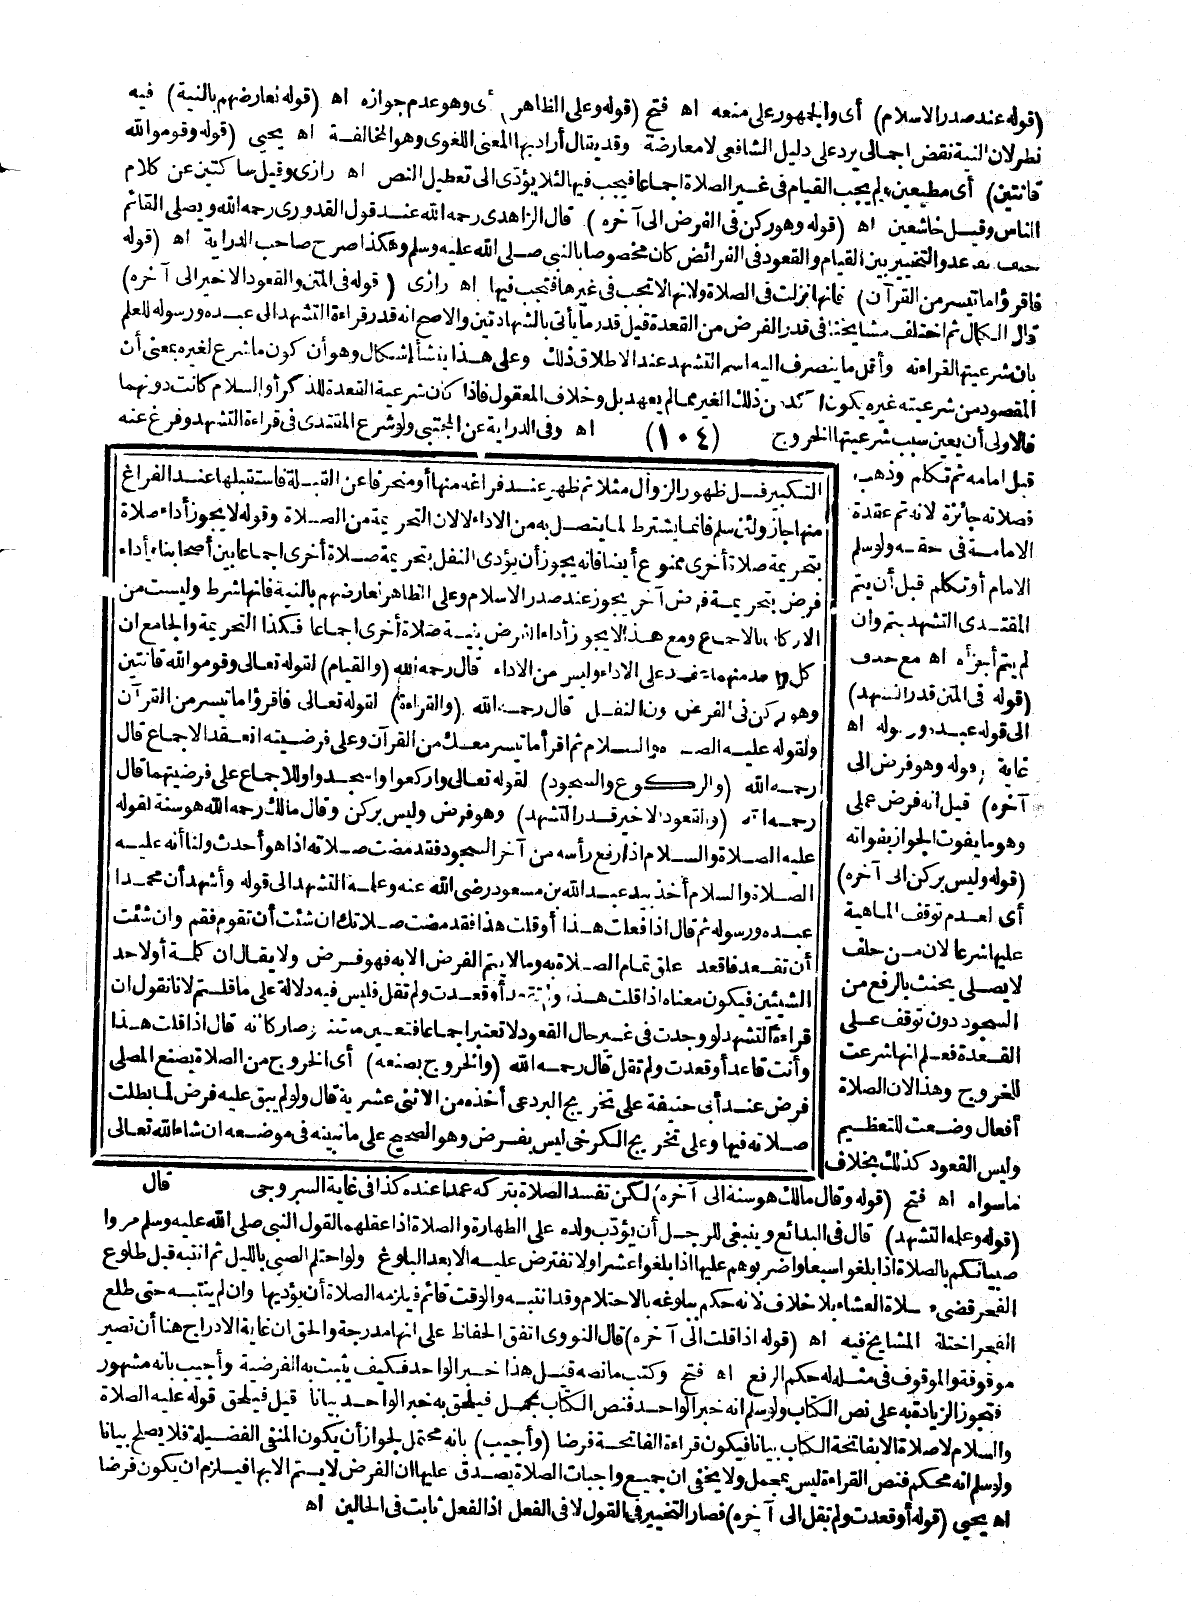 (قوله عند صدر الاسلام) أى والجمهور على منعه اه فتح (قوله وعلى الظاهر) أى وهو عدم جوازه اه (قوله نعارضهم بالنية) فيه
نظر لان النية نقض اجمالى يرد على دليل الشافعى لا معارضة وقد يقال أراد بها المعنى اللغوى وهو المخالفة اه يحيى (قوله وقوموا لله
قانتين) أى مطيعين ولم يجب القيام فى غير الصلاة اجماعا فيجب فيها لئلا يؤدى الى تعطيل النص اه رازى وقيل ساكتين عن كلام
الناس وقيل خاشعين اه (قوله وهو ركن فى الفرض الى آخره) قال الزاهدى رحمه الله عند قول القدورى رحمه الله ويصلى القائم
خلف القاعد والتخيير بين القيام والقعود فى الفرائض كان مخصوصا بالنبى صلى الله عليه وسلم وهكذا صرح صاحب الدراية اه (قوله
فاقرؤا ما تيسر من القرآن) فانها نزلت فى الصلاة ولانها لا تجب فى غيرها فتجب فيها اه رازى (قوله فى المتن والقعود الاخير الى آخره)
قال الكمال ثم اختلف مشايخنا فى قدر الفرض من القعدة قيل قدر ما يأتى بالشهادتين والاصح انه قدر قراءة التشهد الى عبده ورسوله للعلم
بان شرعيتها لقراءته وأقل ما ينصرف اليه اسم التشهد عند الاطلاق ذلك وعلى هذا ينشأ إشكال وهو أن كون ما شرع لغيره بمعنى أن
المقصود من شرعيته غيره يكون آكد من ذلك الغير مما لم يعهد بل وخلاف المعقول فاذا كان شرعية القعدة للذكر أو السلام كانت دونهما
فالاولى أن يعين سبب شرعيتها الخروج (١٠٤) اه وفى الدراية عن المجتبى ولو شرع المقتدى فى قراءة التشهد وفرغ عنه
قبل امامه ثم تكلم وذهب
فصلاته جائزة لانه تم عقدة
الامامة فى حقه ولو سلم
الامام أو تكلم قبل أن يتم
المقتدى التشهد يتم وان
لم يتم أجزأه اه مع حذف
(قوله فى المتن قدر التشهد)
الى قوله عبده ورسوله اه
غاية (قوله وهو فرض الى
آخره) قيل انه فرض عملى
وهو ما يفوت الجواز بفواته
(قوله وليس بركن الى آخره)
أى لعدم توقف الماهية
عليها شرعا لان من حلف
لا يصلى يحنث بالرفع من
السجود دون توقف على
القعدة فعلم انها شرعت
للخروج وهذا لان الصلاة
أفعال وضعت للتعظيم
وليس القعود كذلك بخلاف
التكبير قبل ظهور الزوال مثلا ثم ظهر عند فراغه منها أو منحرفا عن القبلة فاستقبلها عند الفراغ
منها جاز ولئن سلم فانما يشترط لما يتصل به من الاداء لا لان التحريمة من الصلاة وقوله لا يجوز أداء صلاة
بتحريمة صلاة أخرى ممنوع أيضا فانه يجوز أن يؤدى النفل بتحريمة صلاة أخرى اجماعا بين أصحابنا وأداء
فرض بتحريمة فرض آخر يجوز عند صدر الاسلام وعلى الظاهر نعارضهم بالنية فانها شرط وليست من
الاركان بالاجماع ومع هذا لا يجوز أداء الفرض بنية صلاة أخرى اجماعا فكذا التحريمة والجامع ان
كل واحد منهما يتقدم على الاداء وليس من الاداء قال رحمه الله (والقيام) لقوله تعالى وقوموا لله قانتين
وهو ركن فى الفرض دون النفل قال رحمه الله (والقراءة) لقوله تعالى فاقرؤا ما تيسر من القرآن
ولقوله عليه الصلاة والسلام ثم اقرأ ما تيسر معك من القرآن وعلى فرضيته انعقد الاجماع قال
رحمه الله (والركوع والسجود) لقوله تعالى واركعوا واسجدوا وللاجماع على فرضيتهما قال
رحمه الله (والقعود الاخير قدر التشهد) وهو فرض وليس بركن وقال مالك رحمه الله هو سنة لقوله
عليه الصلاة والسلام اذا رفع رأسه من آخر السجود فقد مضت صلاته اذا هو أحدث ولنا أنه عليه
الصلاة والسلام أخذ بيد عبد الله بن مسعود رضى الله عنه وعلمه التشهد الى قوله وأشهد أن محمدا
عبده ورسوله ثم قال اذا فعلت هذا أو قلت هذا فقد مضت صلاتك ان شئت أن تقوم فقم وان شئت
أن تقعد فاقعد علق تمام الصلاة به وما لا يتم الفرض الا به فهو فرض ولا يقال ان كلمة أو لاحد
الشيئين فيكون معناه اذا قلت هذا ولم تقعد أو قعدت ولم تقل فليس فيه دلالة على ما قلتم لانا نقول ان
قراءة التشهد لو وجدت فى غير حال القعود لا تعتبر اجماعا فتعين ما قلنا وصار كأنه قال اذا قلت هذا
وأنت قاعد أو قعدت ولم تقل قال رحمه الله (والخروج بصنعه) أى الخروج من الصلاة بصنع المصلى
فرض عند أبى حنيفة على تخريج البردعى أخذه من الاثنى عشرية قال ولو لم يبق عليه فرض لما بطلت
صلاته فيها وعلى تخريج الكرخى ليس بفرض وهو الصحيح على ما نبينه فى موضعه ان شاء الله تعالى
قال
ما سواه اه فتح (قوله وقال مالك هو سنة الى آخره) لكن تفسد الصلاة بتركه عمدا عنده كذا فى غاية السروجى
(قوله وعلمه التشهد) قال فى البدائع وينبغى للرجل أن يؤدب ولده على الطهارة والصلاة اذا عقلهما لقول النبى صلى الله عليه وسلم مروا
صبيانكم بالصلاة اذا بلغوا سبعا واضربوهم عليها اذا بلغوا عشرا ولا تفترض عليه الا بعد البلوغ ولو احتلم الصبى بالليل ثم انتبه قبل طلوع
الفجر قضى صلاة العشاء بلا خلاف لانه حكم ببلوغه بالاحتلام وقد انتبه والوقت قائم فيلزمه الصلاة أن يؤديها وان لم ينتبه حتى طلع
الفجر اختلف المشايخ فيه اه (قوله اذا قلت الى آخره) قال النووى اتفق الحفاظ على انها مدرجة والحق ان غاية الادراج هنا أن تصير
موقوفة والموقوف فى مثله له حكم الرفع اه فتح وكتب ما نصه قيل هذا خبر الواحد فكيف يثبت به الفرضية وأجيب بانه مشهور
فتجوز الزيادة به على نص الكتاب ولو سلم انه خبر الواحد فنص الكتاب مجمل فيلحق به خبر الواحد بيانا قيل فيلحق قوله عليه الصلاة
والسلام لا صلاة الا بفاتحة الكتاب بيانا فيكون قراءة الفاتحة فرضا (وأجيب) بانه محتمل لجواز أن يكون المنفى الفضيلة فلا يصلح بيانا
ولو سلم انه محكم فنص القراءة ليس بمجمل ولا يخفى ان جميع واجبات الصلاة يصدق عليها ان الفرض لا يتم الا بها فيلزم ان يكون فرضا
اه يحيى (قوله أو قعدت ولم تقل الى آخره) فصار التخيير فى القول لا فى الفعل اذ الفعل ثابت فى الحالين اه